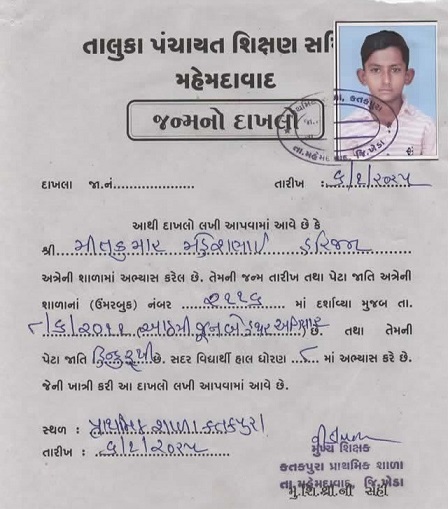 તાલુકા પંચાયત શિક્ષણ સમિ
મહેમદાવાદ
જન્મનો દાખલો
પ્રાથમિક શાળા, કતકપુરા
તા.મહેમદાવાદ, જિ.ખેડા
દાખલા જા.નં. તારીખ : ૬/૧/૨૦૨૫
આથી દાખલો લખી આપવામાં આવે છે કે
શ્રી મીતકુમાર હરિજન
અત્રેની શાળામાં અભ્યાસ કરેલ છે. તેમની જન્મ તારીખ તથા પેટા જાતિ અત્રેની
શાળાનાં (ઉંમરબુક) નંબર ૨૧૧૬ માં દર્શાવ્યા મુજબ તા.
૮/૬/૨૦૧૧ (આઠમી જૂન બે હજાર અગિયાર) છે. તથા તેમની
પેટા જાતિ હિન્દુ છે. સદર વિદ્યાર્થી હાલ ધોરણ ૮ માં અભ્યાસ કરે છે.
જેની ખાત્રી કરી આ દાખલો લખી આપવામાં આવે છે.
સ્થળ : પ્રાથમિક શાળા કતકપુરા
તારીખ : ૬/૧/૨૦૨૫
મુખ્ય શિક્ષક
કતકપુરા પ્રાથમિક શાળા
તા.મહેમદાવાદ, જિ.ખેડા
મુ.શિ.શ્રી ની સહી